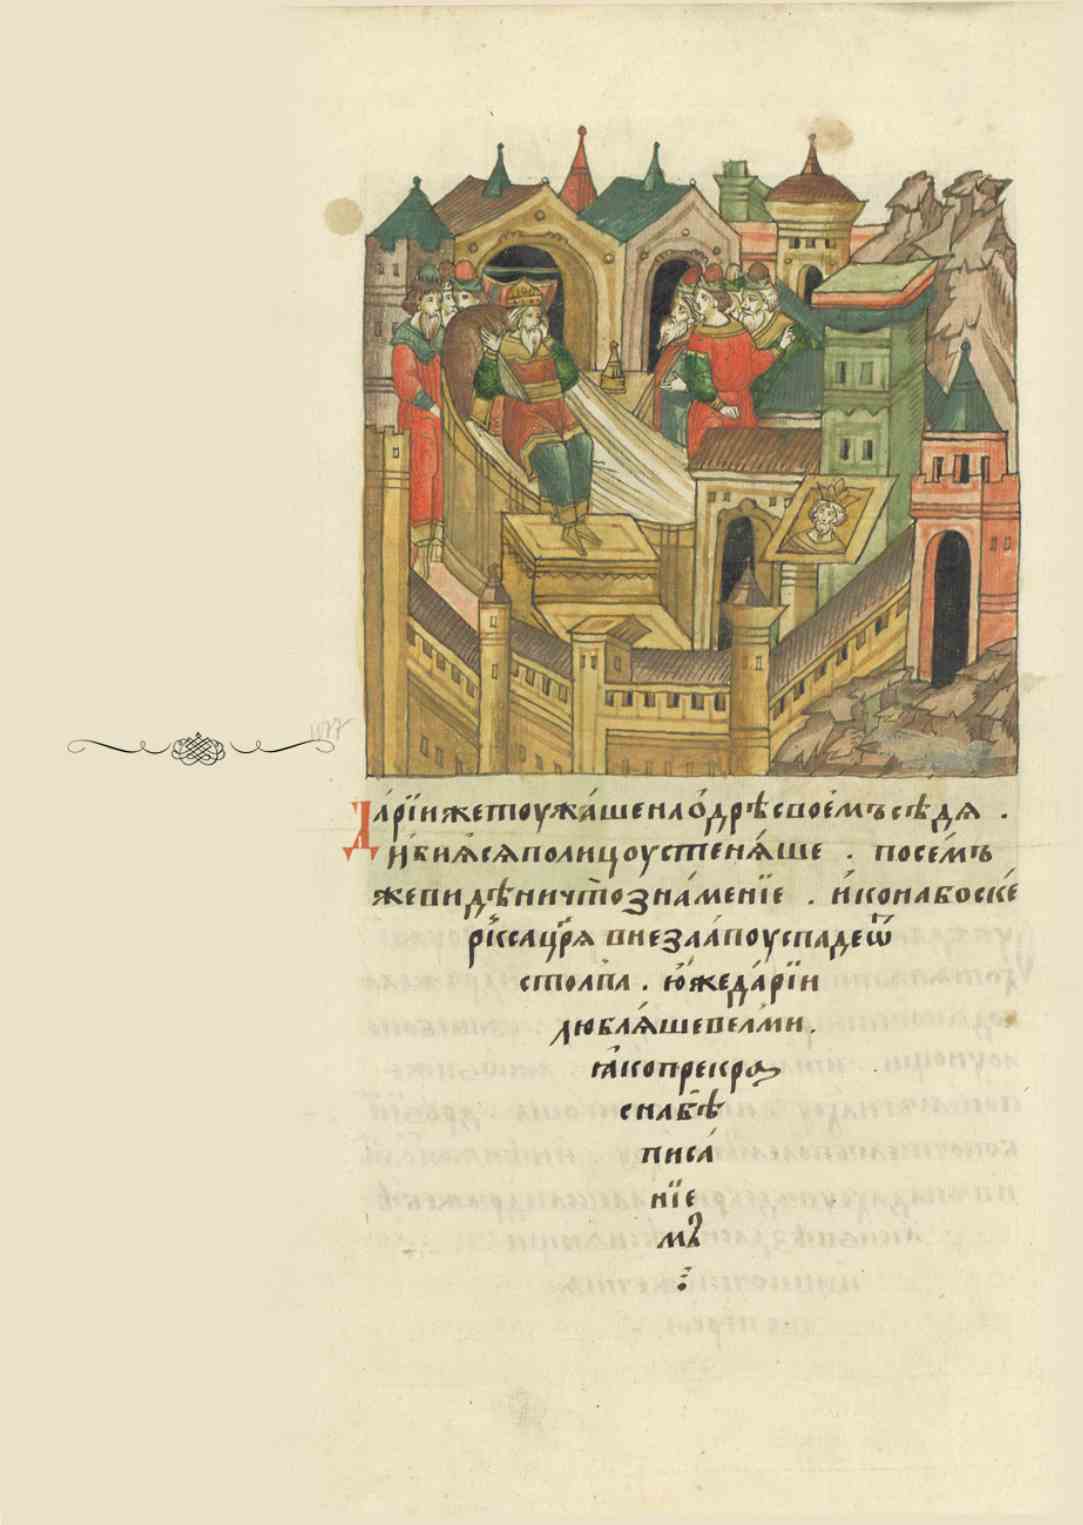 Да́рїи же то ѹжа́шен на о́дрѣ своемъ сѣдѧ .
и҆ бїѧ́сѧ по лицѹ стенѧ́ше . посе́мъ
же видѣ ничто̀ зна́менїе . и҆кона боске́
рі́кса цр҃ѧ внезаа́пѹ спаде ѿ
столпа̀ . ю҆́же да́рїи
люблѧ́ше велмѝ .
ꙗ҆́ко прекра
сна бѣ̀
писа́
нїе
мъ